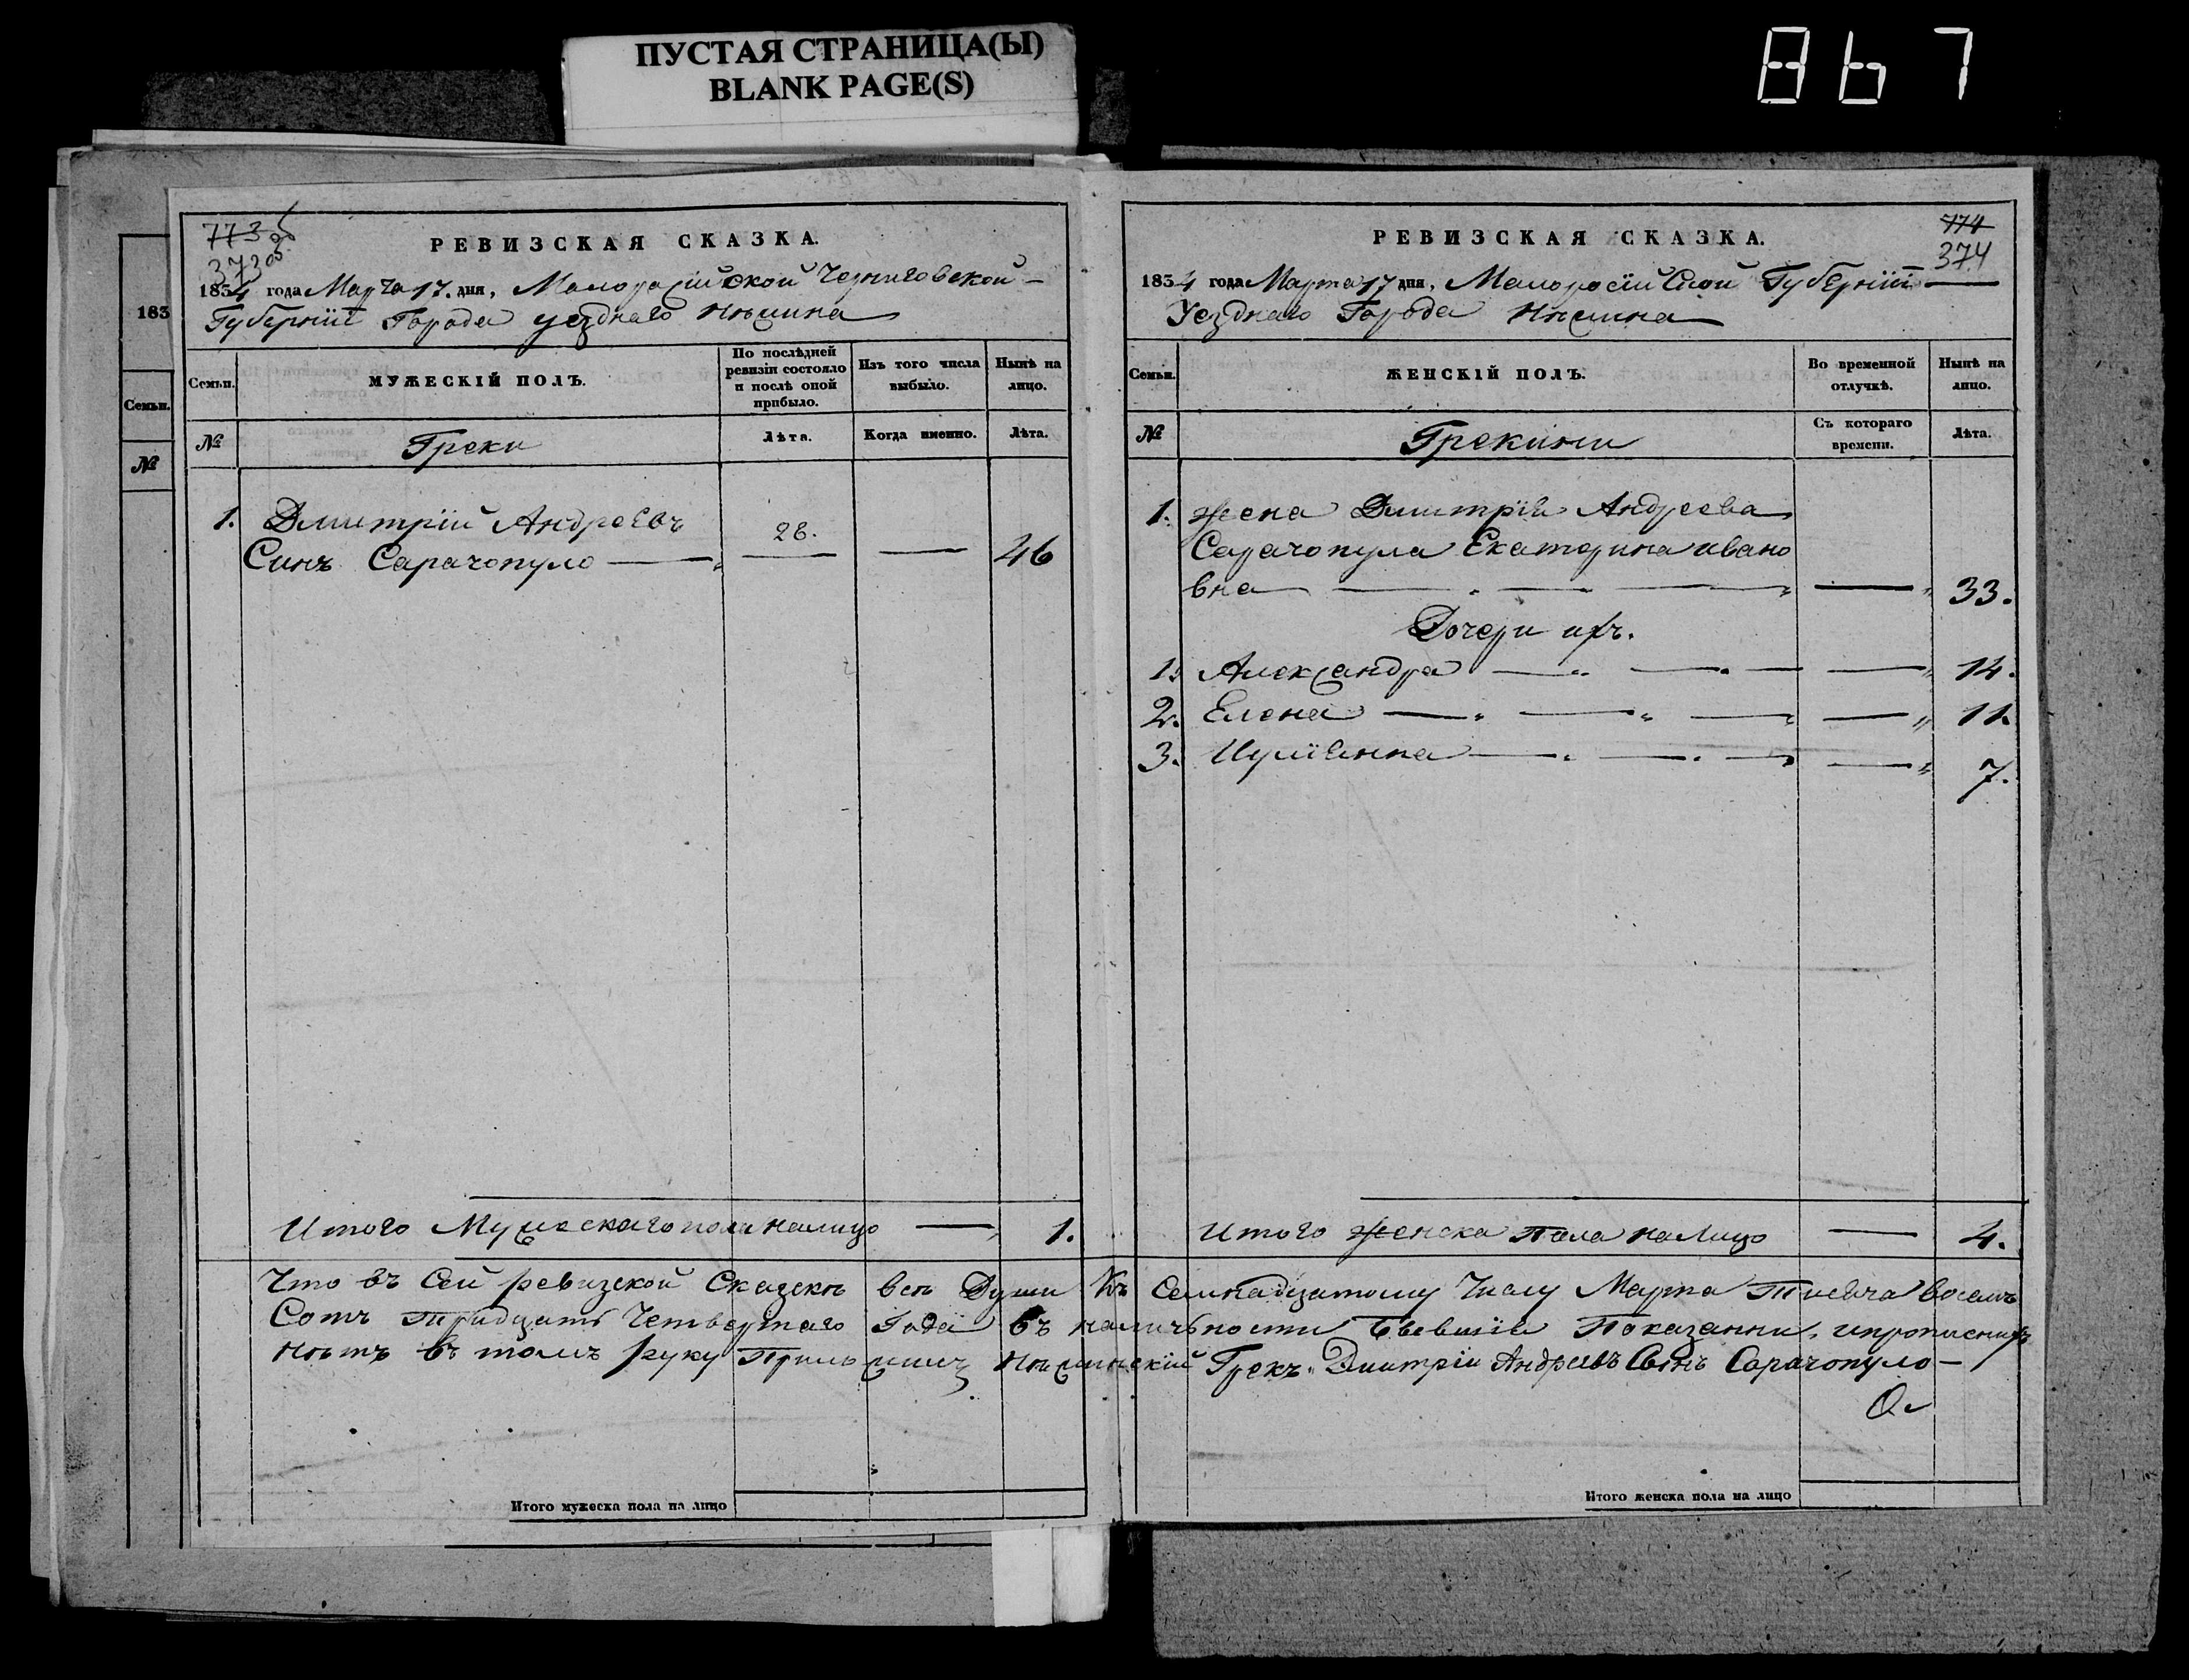 ПУСТАЯ СТРАНИЦА(Ы)
BLANK PAGE(S)
867
183
Семьи.
№
773
373 об.
РЕВИЗСКАЯ СКАЗКА.
1834 года Марта 17. дня, Малоросійской Черниговской
Губерніи Города уезднаго Нѣжина
Семьи.
МУЖЕСКІЙ ПОЛЪ.
По послѣдней ревизіи состояло и послѣ оной прибыло.
Изъ того числа выбыло.
Нынѣ на лицо.
№
Греки
Лѣта.
Когда именно.
Лѣта.
1. Дмитрій Андреевъ
Синъ Сарачопуло 28. 46
Итого Мужескаго пола налицо 1.
774
374
РЕВИЗСКАЯ СКАЗКА.
1834 года Марта 17 дня, Малоросійской Губерніи
Уезднаго Города Нѣжина
Семьи.
ЖЕНСКІЙ ПОЛЪ.
Во временной отлучкѣ.
Нынѣ на лицо.
№
Грекини
Съ котораго времени.
Лѣта.
1. жена Дмитрія Андреева
Сарачопула Екатерина ивано
вна 33.
Дочери ихъ.
1. Александра 14.
2. Елена 11.
3. Иуліянна 7.
Итого женска пола на лицо 4.
Что въ сей ревизской Сказскѣ всѣ Души Къ Семнадцатому Числу Марта Тисеча восемъ
Сотъ тридцать Четвертаго Года въ наличности бвевшіе Показанни, ипрописнихъ
нѣтъ въ томъ руку Приложилъ Нѣжинскій Грекъ Дмитрій Андреевъ Синъ Сарачопуло
Итого мужеска пола на лицо
Итого женска пола на лицо